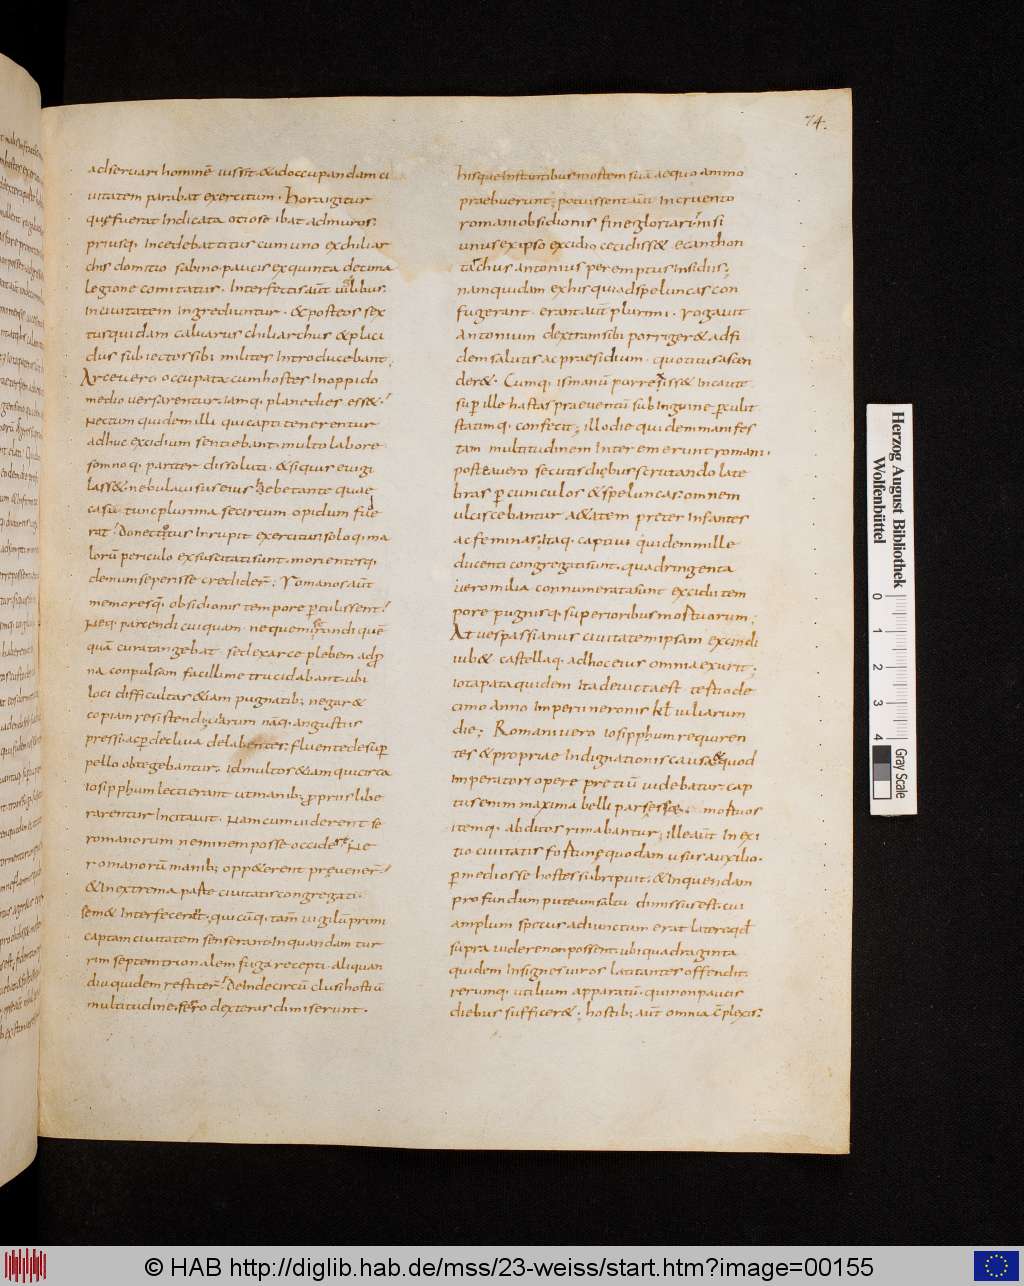 74.
adservari hominē iussit. &adoccupandam ci
uitatem parabat exercitum. Hora igitur
quę fuerat Indicata otiose ibat admuros;
priusq; Incedebat titus cum uno ex chiliar
chis domitio sabino. paucis ex quinta decima
legione comitatus. Interfectis aūt uigilibus.
In ciuitatem Ingrediuntur. & posteos sex
tus quidam caluarus chiliarchus & placi
dus subiectos sibi milites Introducebant;
Arce uero occupata cum hostes In oppido
medio uersarentur. iamq; plane dies ess&.
Nectum quidem illi qui capti tenerentur
adhuc excidium sentiebant. multo labore
somnoq. pariter dissoluti. & siquis euigi
lass& nebula uisus eius hebetante quae
casu tunc plurima se circum opidum fuderat
rat. Donec totus Irrupit exercitus. solo q; ma
lorū periculo exsuscitati sunt. morientesq;
demum se perisse crediderī; Romanos aūt
memoresq; obsidionis tempore ptulissent.
Neq; parcendi cuiquam. neque miserandi quē
quā cura tangebat. sed ex arce plebem adp
na conpulsam facillime trucidabant. ubi
loci difficultas &iam pugnatib; negar&
copiam resistendi; uiarum nāq; angustiis
pressi. ac p decliua delabentes. fluente desup
pello obtegebantur. id multos &iam qui circa
iosipphum lecti erant ut manib; propriis libe
rarentur Incitauit. Nam cum uiderent se
romanorum neminem posse occidere Ne
romanorū manib; opp&erent preuenerī
& In extrema parte ciuitatis congregati.
sem& Interfecerūt. qui cūq; tam uigilū primi
captam ciuitatem senserant. In quandam tur
rim septemtrionalem fuga recepti. aliquan
diu quidem restiterī. deInde circū clusi hostiū
multitudine. sero dexteras dimiserunt.
hisque Instantibus mortem suā aequo animo
praebuerunt; potuissent aūt Incruento
romani obsidionis fine gloriari nisi
unus ex ipso excidio cecidiss& ecanthon
tarchus antonius peremptus Insidiis;
nam quidam ex his qui adspeluncas con
fugerant. erant aūt plurimi. rogauit
Antonium dextram sibi porriger& adfi
dem salutis ac praesidium. quo titus ascen
der&. Cumq; is manū porrexiss& Incaute
sup ille hastas praeuentū sub Inguine pculit
statimq. confecit; illo die quidem manifes
tam multitudinem Inter emerunt romani.
postea uero secutis diebus scrutando late
bras p cuniculos & speluncas. omnem
ulciscebantur a&atem preter Infantes
ac feminas; Itaq; captiui quidem mille
ducenti congregati sunt. quadringenta
uero milia connumerata sunt excidii tem
pore pugnisq; superioribus mortuorum;
At uespassianus ciuitatem ipsam excindi
iub& castellaq. adhoc eius omnia exurit;
iotapata quidem Ita deuicta est tertio de
cimo anno Imperii neronis kł iuliarum
die; Romani uero iosipphum requiren
tes & propriae Indignationis causa & quod
Imperatori opere pretiū uidebatur. cap
tus enim maxima belli pars ess&. mortuos
itemq; abditos rimabantur; ille aūt In exi
tio ciuitatis fortunę quodam usus auxilio.
p medios se hostes subripuit. & Inquendam
profundum puteum saltu dimissus est. cui
amplum specus adiunctum erat latere qđ
supra uidere non possent. ubi quadraginta
quidem Insignes uiros latitantes offendit.
rerumq; utilium apparatū. qui non paucis
diebus sufficer&; hostib; aūt omnia cplexis;
Herzog August Bibliothek
Wolfenbüttel
0 1 2 3 4
Gray Scale
© HAB http://diglib.hab.de/mss/23-weiss/start.htm?image=00155